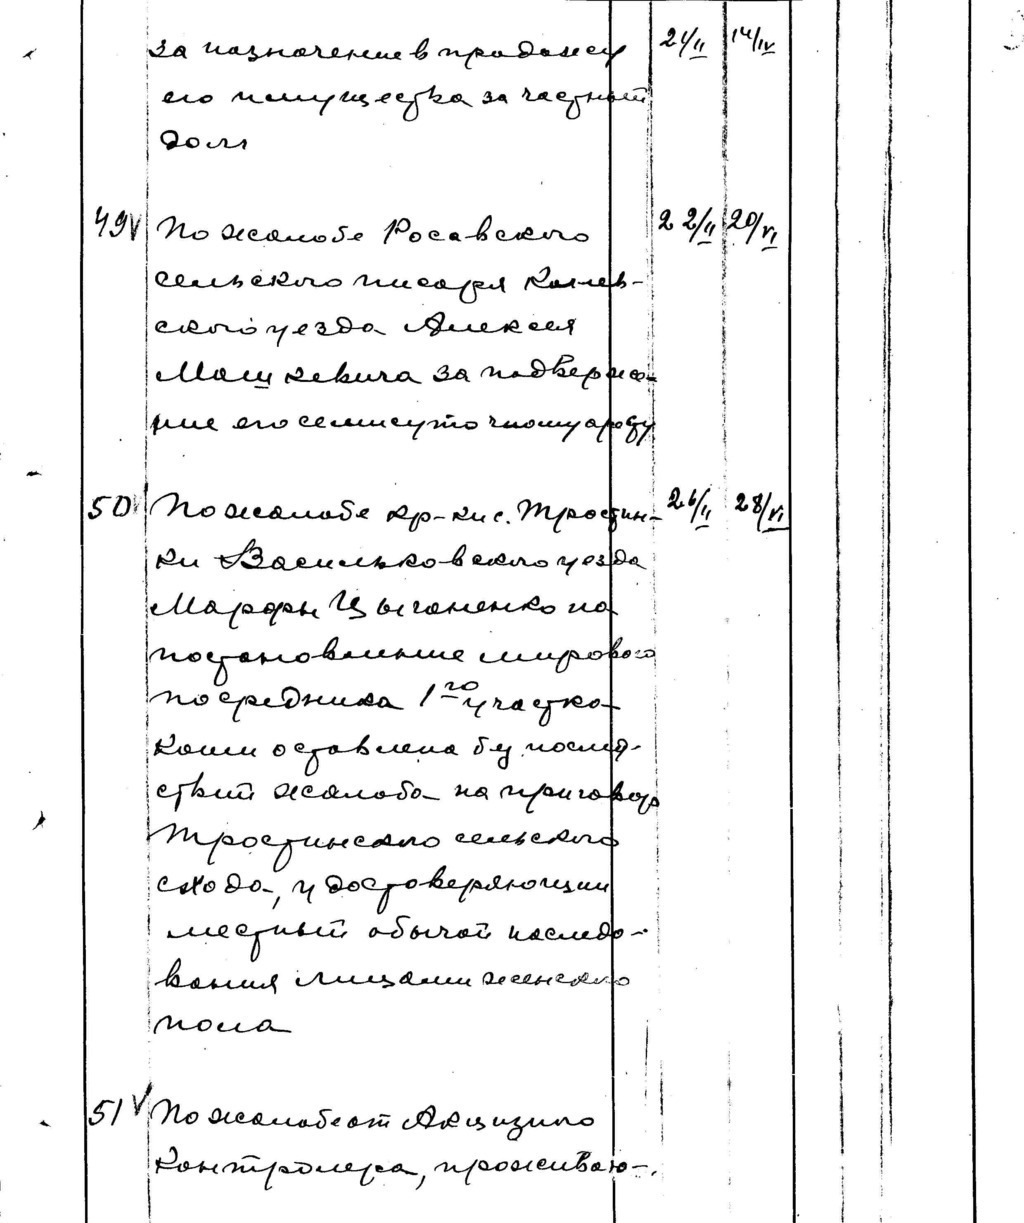 за назначение в продажу 21/II 14/IV
его имущества за частный
долг
49 V По жалобе Росавского 22/II 20/VI
сельского писаря Канев-
ского уезда Алексея
Машкевича за подверже-
ние его семисуточному аресту
50 V По жалобе кр-ки с. Тростин- 26/II 28/VI
ки Васильковского уезда
Марфы Цыганенко на
постановление мирового
посредника 1го участка
коим оставлена без послед-
ствий жалоба на приговор
Тростинского сельского
схода, удостоверяющий
местный обычай наследо-
вания лицами женского
пола
51 V По жалобе от Акцизного
Контролера, проживаю-